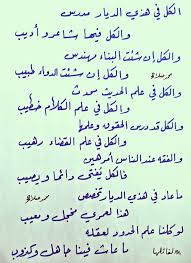 الكل في هذي الديار مدرس
والكل فيها شاعر و أديب
والكل إن شئت البناء مهندس
والكل إن شئت الدواء طبيب
محمد صلاح
والكل في علم الحديث محدث
والكل في علم الكلام خطيب
والكل قد درس الحقوق وعلمها
والكل في علم القضاء رهيب
والفقه عند الناس أمر هين
فالكل يفتي دائما و يصيب
ما عاد في هذي الديار تخصص
محمد صلاح
هذا لعمري مخجل و معيب
لو كلنا علم الحدود لعقله
ما عاث فينا جاهل وكذوب